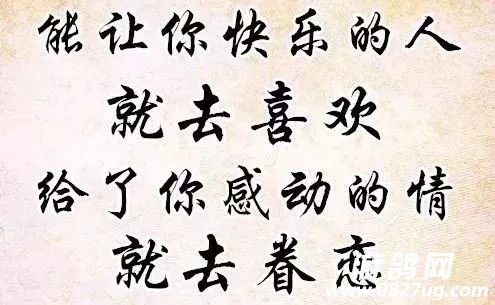 能让你快乐的人
就去喜欢
给了你感动的情
就去眷恋
鸽网
www.0827ug.com